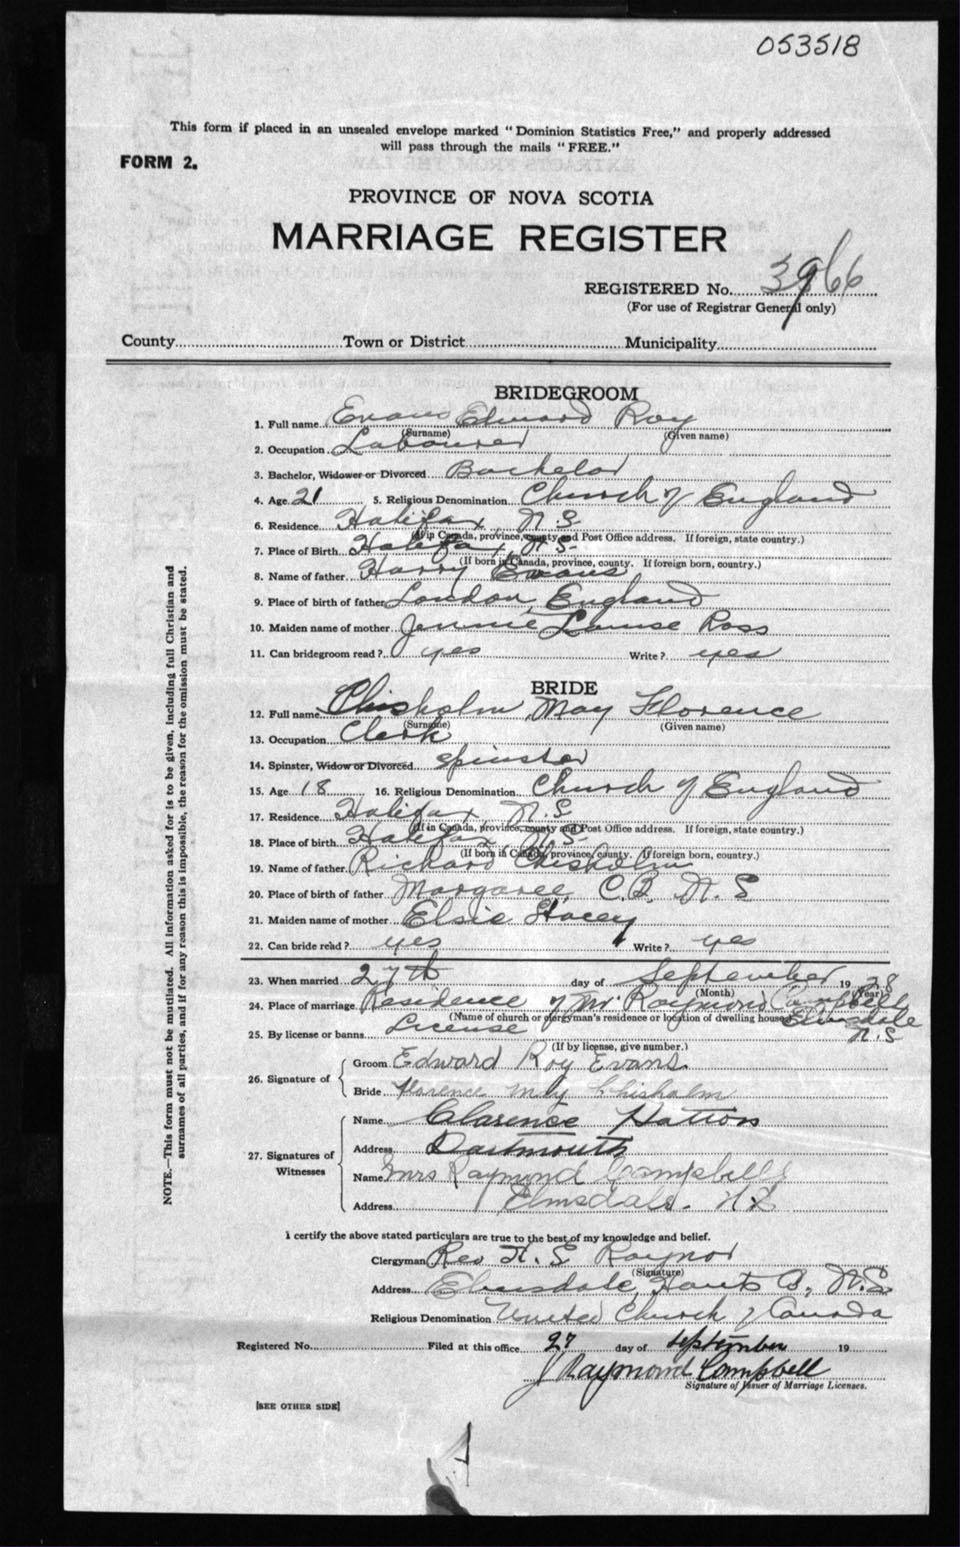 053518
This form if placed in an unsealed envelope marked “Dominion Statistics Free,” and properly addressed
will pass through the mails “FREE.”
FORM 2.
PROVINCE OF NOVA SCOTIA
MARRIAGE REGISTER
REGISTERED No. 3966
(For use of Registrar General only)
County Town or District Municipality
BRIDEGROOM
1. Full name Evans Edward Roy
(Surname) (Given name)
2. Occupation Labourer
3. Bachelor, Widower or Divorced Bachelor
4. Age 21 5. Religious Denomination Church of England
6. Residence Halifax, N.S
(If in Canada, province, county and Post Office address. If foreign, state country.)
7. Place of Birth Halifax, N.S.
(If born in Canada, province, county. If foreign born, country.)
8. Name of father Harry Evans
9. Place of birth of father London, England
10. Maiden name of mother Jennie Louise Ross
11. Can bridegroom read? yes Write? yes
BRIDE
12. Full name Chisholm, May Florence
(Surname) (Given name)
13. Occupation Clerk
14. Spinster, Widow or Divorced spinster
15. Age 18 16. Religious Denomination Church of England
17. Residence Halifax, N.S
(If in Canada, province, county and Post Office address. If foreign, state country.)
18. Place of birth Halifax, N.S.
(If born in Canada, province, county. If foreign born, country.)
19. Name of father Richard Chisholm
20. Place of birth of father Margaree, C.B. N.S
21. Maiden name of mother Elsie Stacey
22. Can bride read? yes Write? yes
23. When married 27th day of September 1928
(Month) (Year)
24. Place of marriage Residence of Mr. Raymond Campbell
(Name of church or clergyman's residence or location of dwelling house) Elmsdale
25. By license or banns License N.S
(If by license, give number.)
26. Signature of Groom Edward Roy Evans.
Bride Florence May Chisholm
27. Signatures of Witnesses Name Clarence Hatton
Address Dartmouth
Name Mrs Raymond Campbell
Address Elmsdale. N.S
I certify the above stated particulars are true to the best of my knowledge and belief.
Clergyman Rev H. S Raynor
(Signature)
Address Elmsdale, Hants Co, N.S.
Religious Denomination United Church of Canada
Registered No. Filed at this office 27 day of September 19
J Raymond Campbell
Signature of Issuer of Marriage Licenses.
[SEE OTHER SIDE]
NOTE.—This form must not be mutilated. All information asked for is to be given, including full Christian and
surnames of all parties, and if for any reason this is impossible, the reason for the omission must be stated.